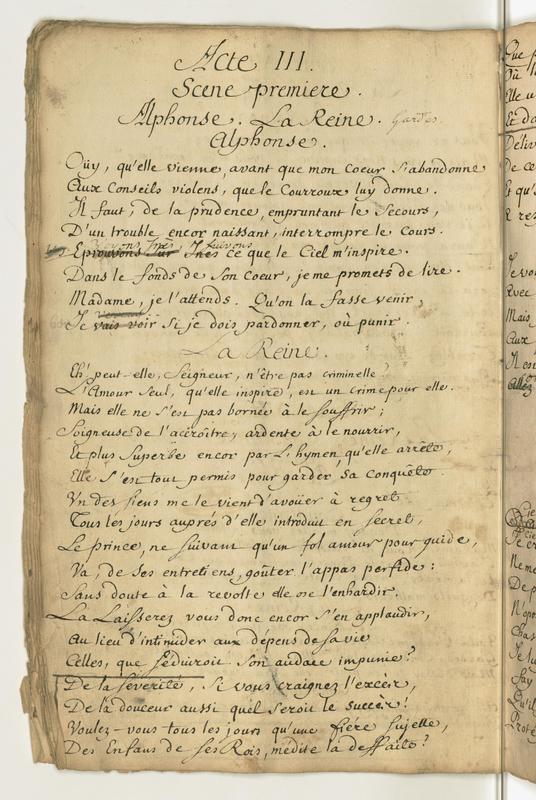 Acte III.
Scene premiere.
Alphonse. La Reine. Gardes.
Alphonse.
Oüy, qu'elle vienne, avant que mon Coeur s'abandonne
Aux Conseils violens, que le Courroux luy donne.
Il faut, de la prudence, empruntant le Secours,
D'un trouble encor naissant, interrompre le Cours.
Voyons Inés, suivons
Eprouvons sur Inés ce que le Ciel m'inspire.
Dans le fonds de Son Coeur, je me promets de lire.
Madame, je l'attends. Qu'on la fasse venir;
Je vais voir Si je dois pardonner, où punir.
La Reine.
Eh! peut-elle, Seigneur, n'être pas criminelle?
L'Amour Seul, qu'elle inspire, est un Crime pour elle.
Mais elle ne S'est pas bornée à le Souffrir;
Soigneuse de l'accroître, ardente à le nourrir,
Et plus Superbe encor par L'hymen qu'elle arrête,
Elle S'est tout permis pour garder Sa Conquête.
Vn des siens me le vient d'avoüer à regret
Tous les jours auprés d'elle introduit en Secret,
Le prince, ne Suivant qu'un fol amour pour guide,
Va, de Ses entretiens, goûter l'appas perfide:
Sans doute à la revolte elle ose l'enhardir.
La Laisserez vous donc encor S'en applaudir,
Au lieu d'intimider aux dépens de sa vie
Celles, que Séduiroit Son audace impunie?
De la Séverité, Si vous craignez l'excèz,
De la douceur aussi quel Seroit le Succèz?
Voulez-vous tous les jours qu'une fiére Sujette,
Des Enfans de Ses Rois, medite la deffaite?